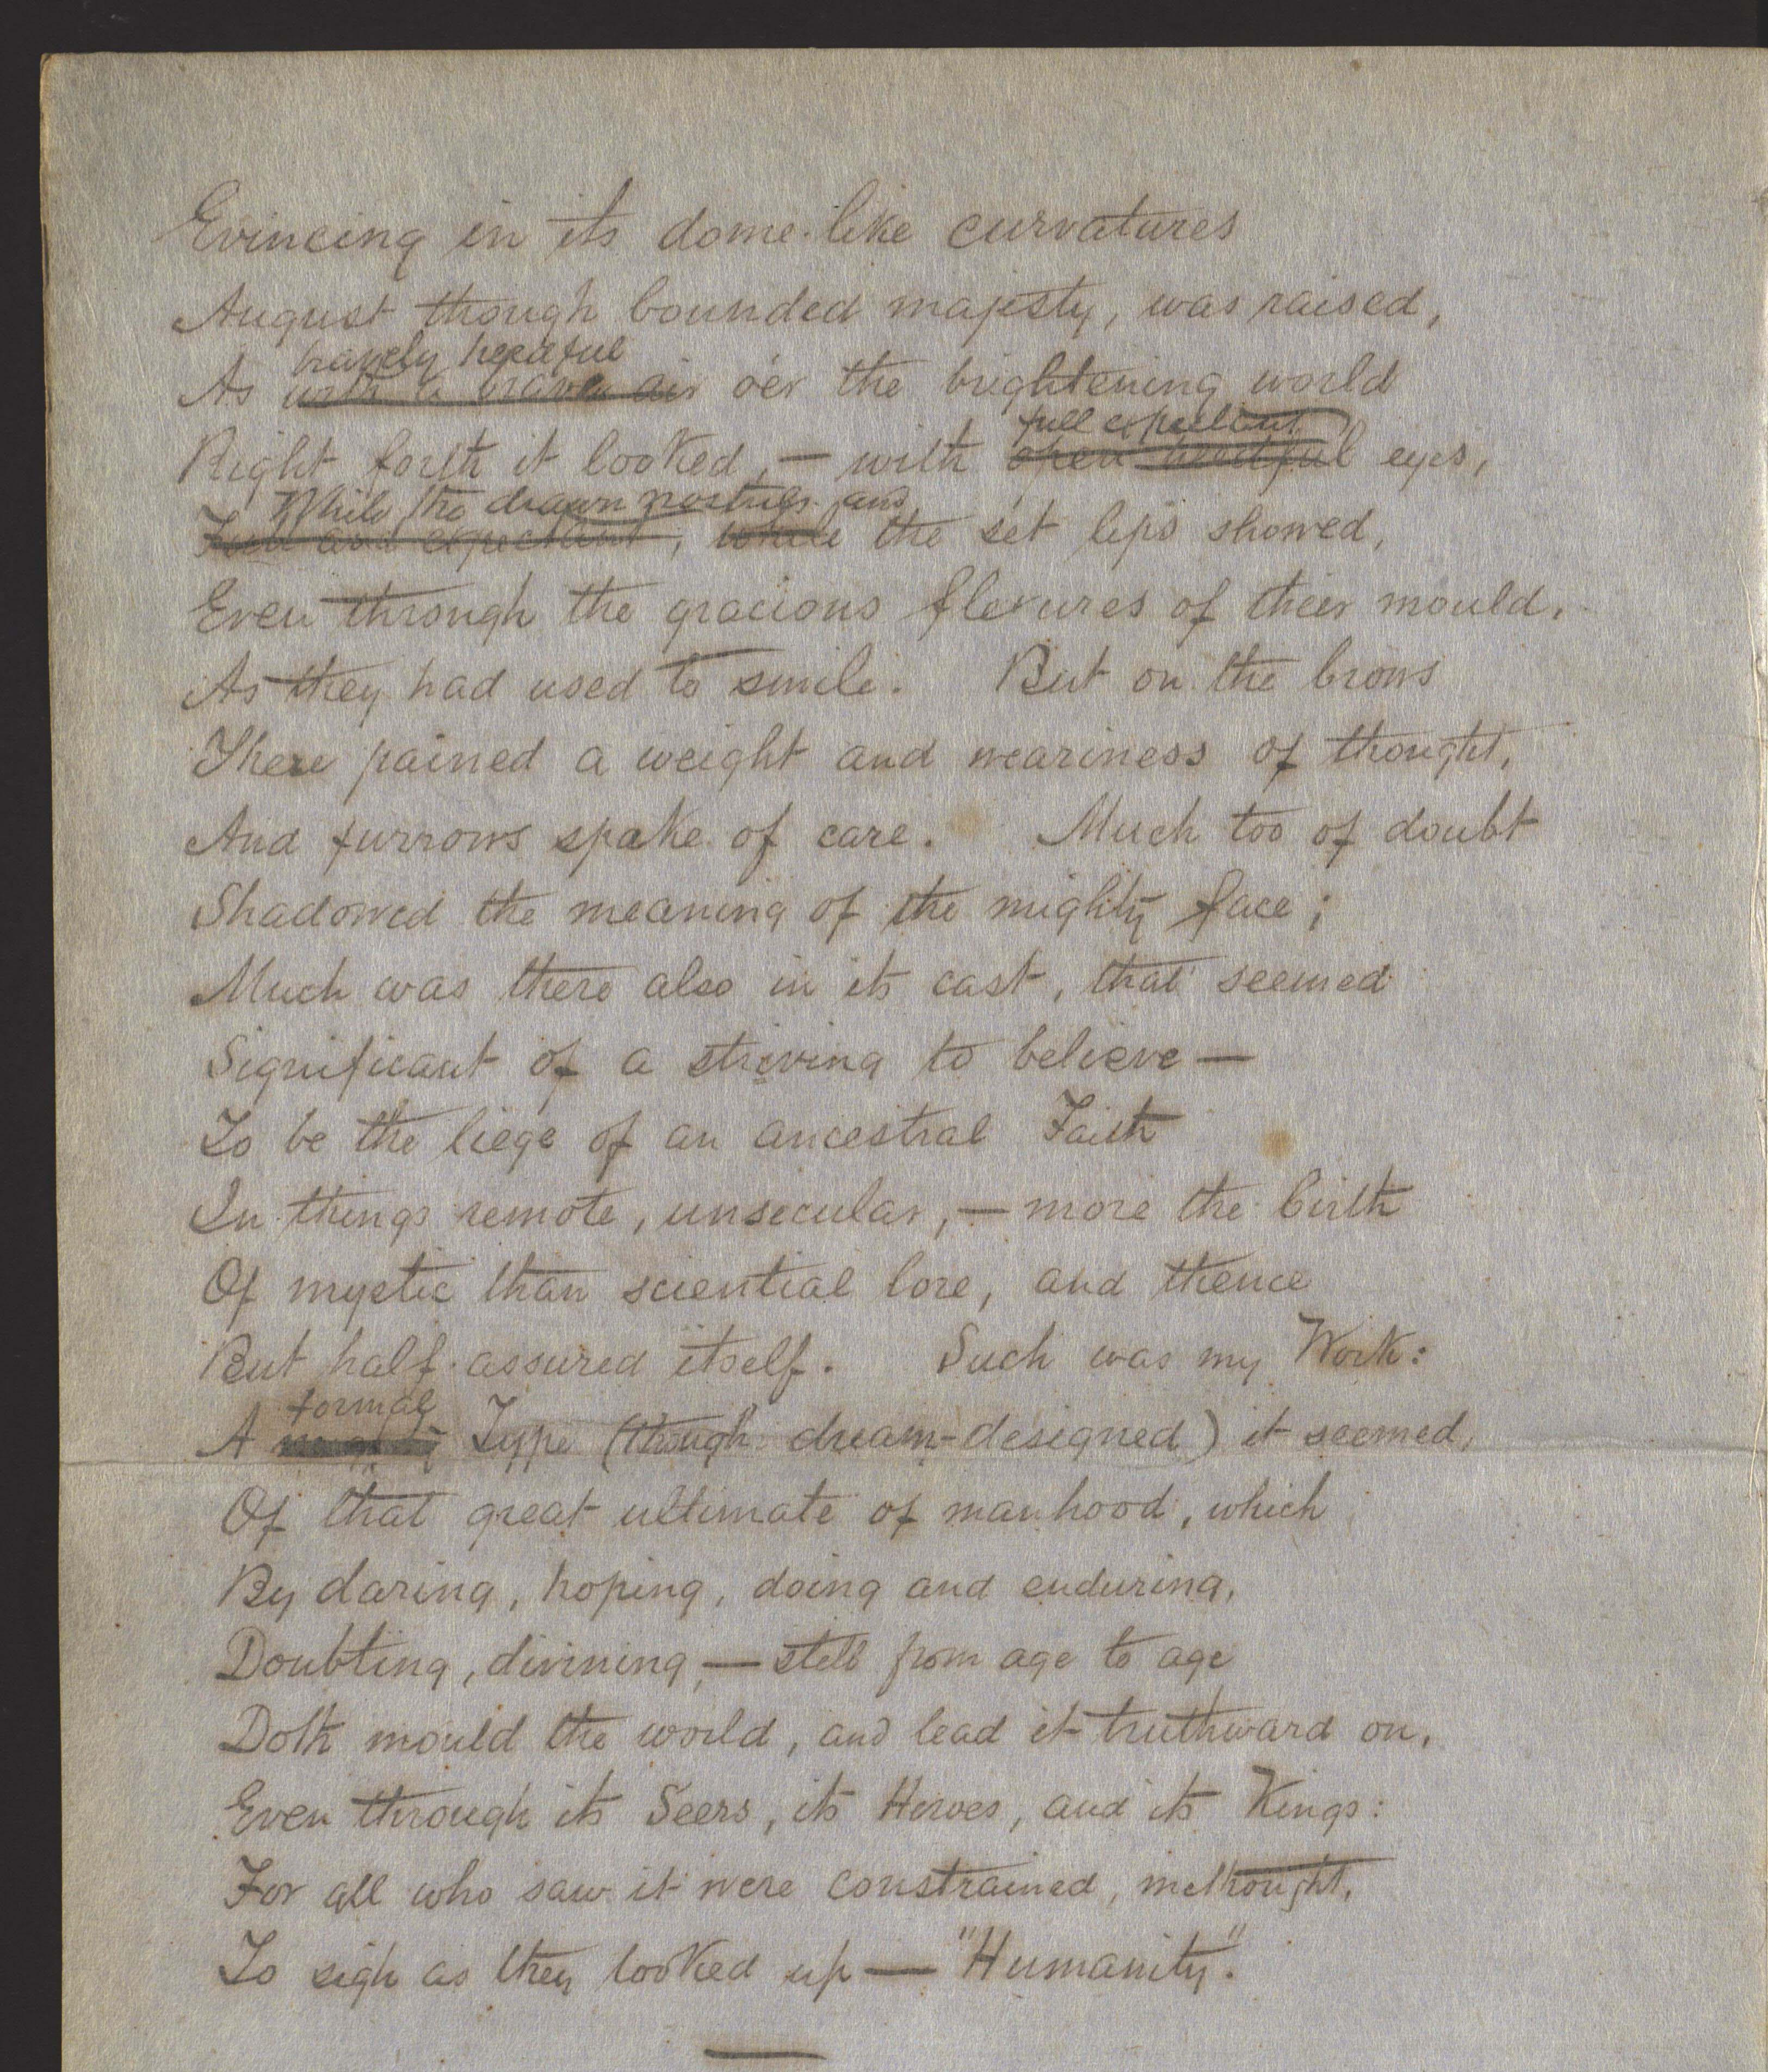 Evincing in its dome-like curvatures
August though bounded majesty, was raised,
bravely heedful
As with a brave air o'er the brightening world
full expectant
Right forth it looked, — with open heedful eyes,
While the drawn nostrils and
Full and expectant, while the set lips showed,
Even through the gracious flexures of their mould,
As they had used to smile. But on the brows
There pained a weight and weariness of thought,
And furrows spake of care. Much too of doubt
Shadowed the meaning of the mighty face;
Much was there also in its cast, that seemed
Significant of a striving to believe —
To be the liege of an ancestral Faith
In things remote, unsecular, — more the birth
Of mystic than sciential lore, and thence
But half-assured itself. Such was my Work:
formal
A mighty Type (though dream-designed) it seemed,
Of that great ultimate of manhood, which
By daring, hoping, doing and enduring,
Doubting, divining, — still from age to age
Doth mould the world, and lead it truthward on,
Even through its Seers, its Heroes, and its Kings:
For all who saw it were constrained, methought,
To sigh as they looked up — "Humanity".